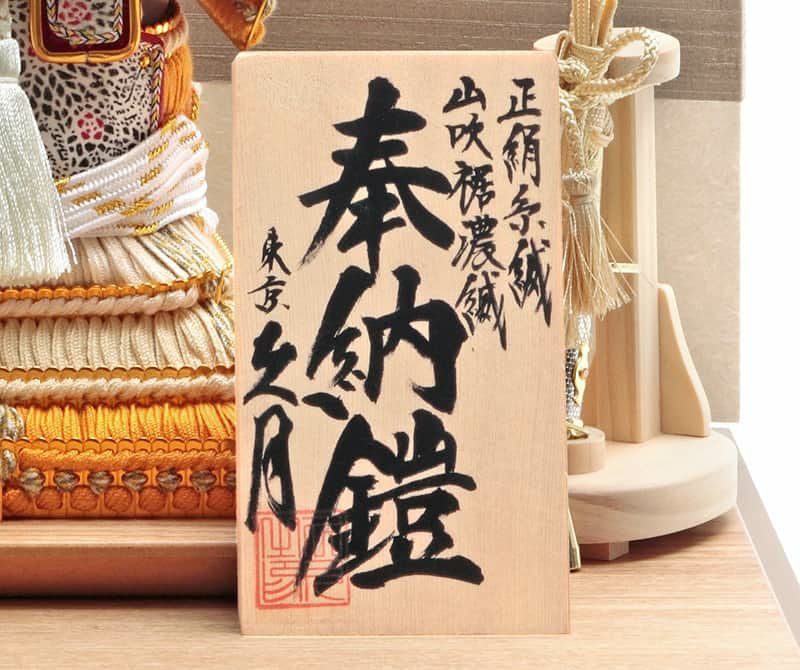 正絹糸縅
山吹裾濃縅
奉納鎧
東京久月